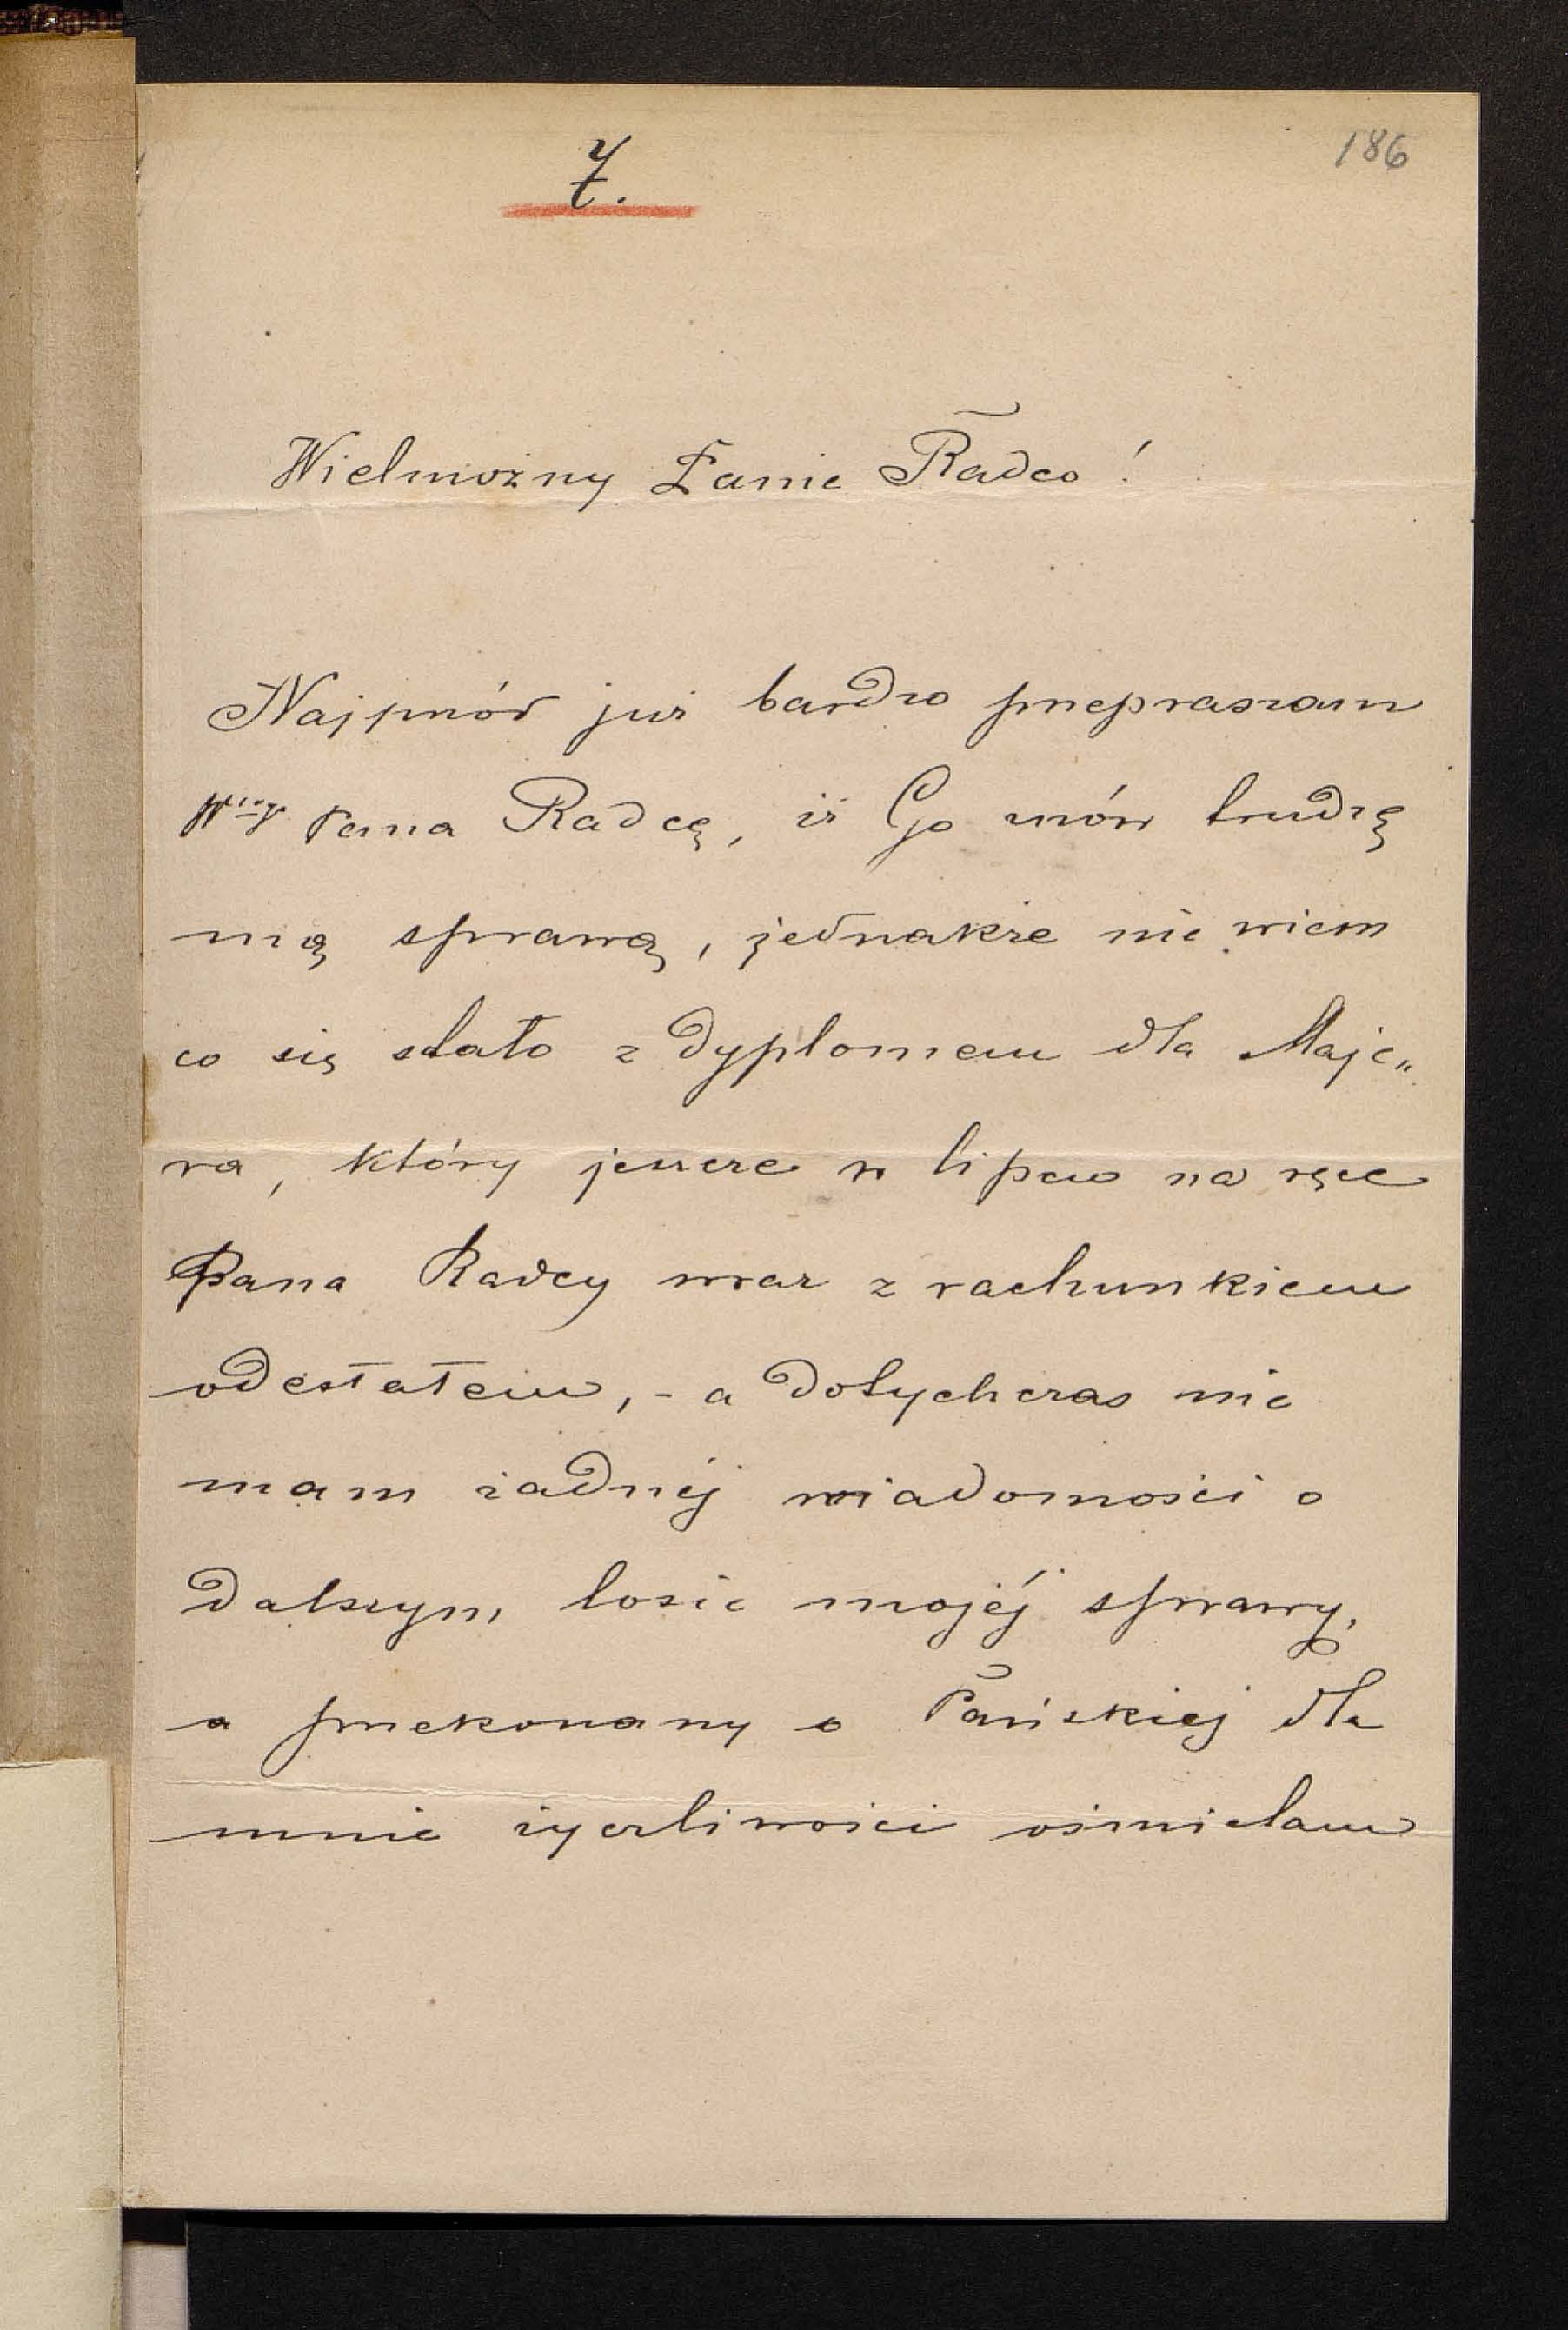 7.
186
Wielmożny Panie Radco!
Najprzód już bardzo przepraszam
Wgo Pana Radcę, iż Go znów trudzę
mą sprawą, jednakże nie wiem
co się stało z dyplomem dla Maje„
ra, który jeszcze w lipcu na ręce
Pana Radcy wraz z rachunkiem
odesłałem, - a dotychczas nie
mam żadnéj wiadomości o
dalszym losie mojéj sprawy,
a przekonany o Pańskiej dla
mnie życzliwości ośmielam